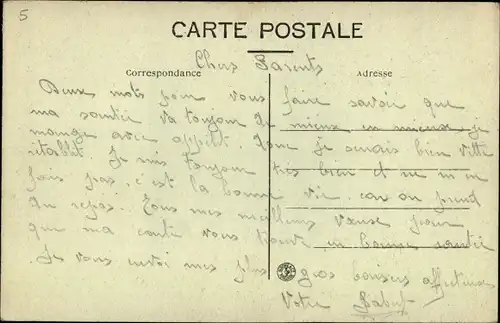 5
CARTE POSTALE
Chers Parents
Correspondance
Adresse
Deux mots pour vous faire savoir que
ma santée va toujour de mieux en mieux je
mange avec appetit donc je serais bien vitte
rétablit. Je suis toujour très bien et ne m en
fais pas. c'est la bonne vie. car on prend
du repos. Tous mes meilleurs vœux pour
que ma carte vous trouve en bonne santée
Je vous envoi mes plus gros baisers affectueux
Votre